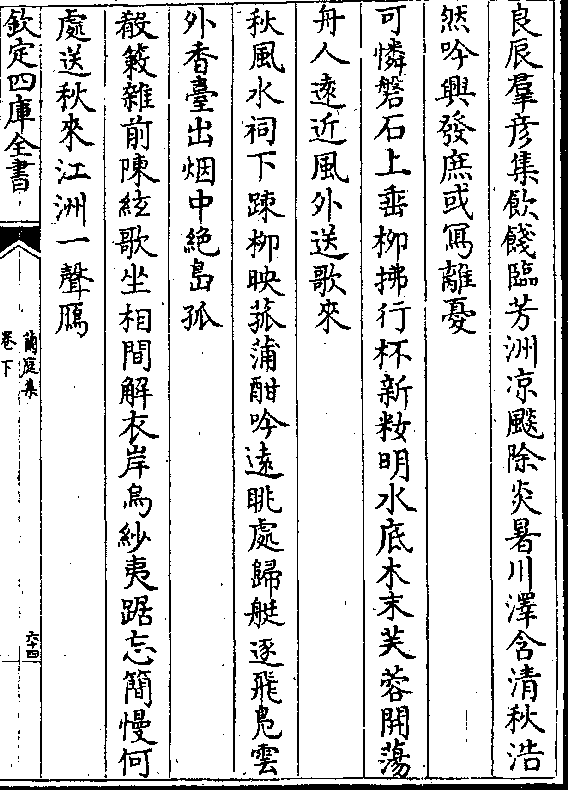 良辰羣彦集飲餞臨芳洲凉飈除炎暑川澤含清秋浩
然吟興發庶或冩離憂
可憐磐石上垂柳拂行杯新粧明水底木末芙蓉開蕩
舟人遠近風外送歌來
秋風水祠下踈柳映菰蒲酣吟遠眺處歸艇逐飛鳬雲
外香臺出烟中絶島孤
殽簌雜前陳絃歌坐相間解衣岸烏紗夷踞忘簡慢何
處送秋來江洲一聲鴈
欽定四庫全書
蘭庭集
卷下
六十四